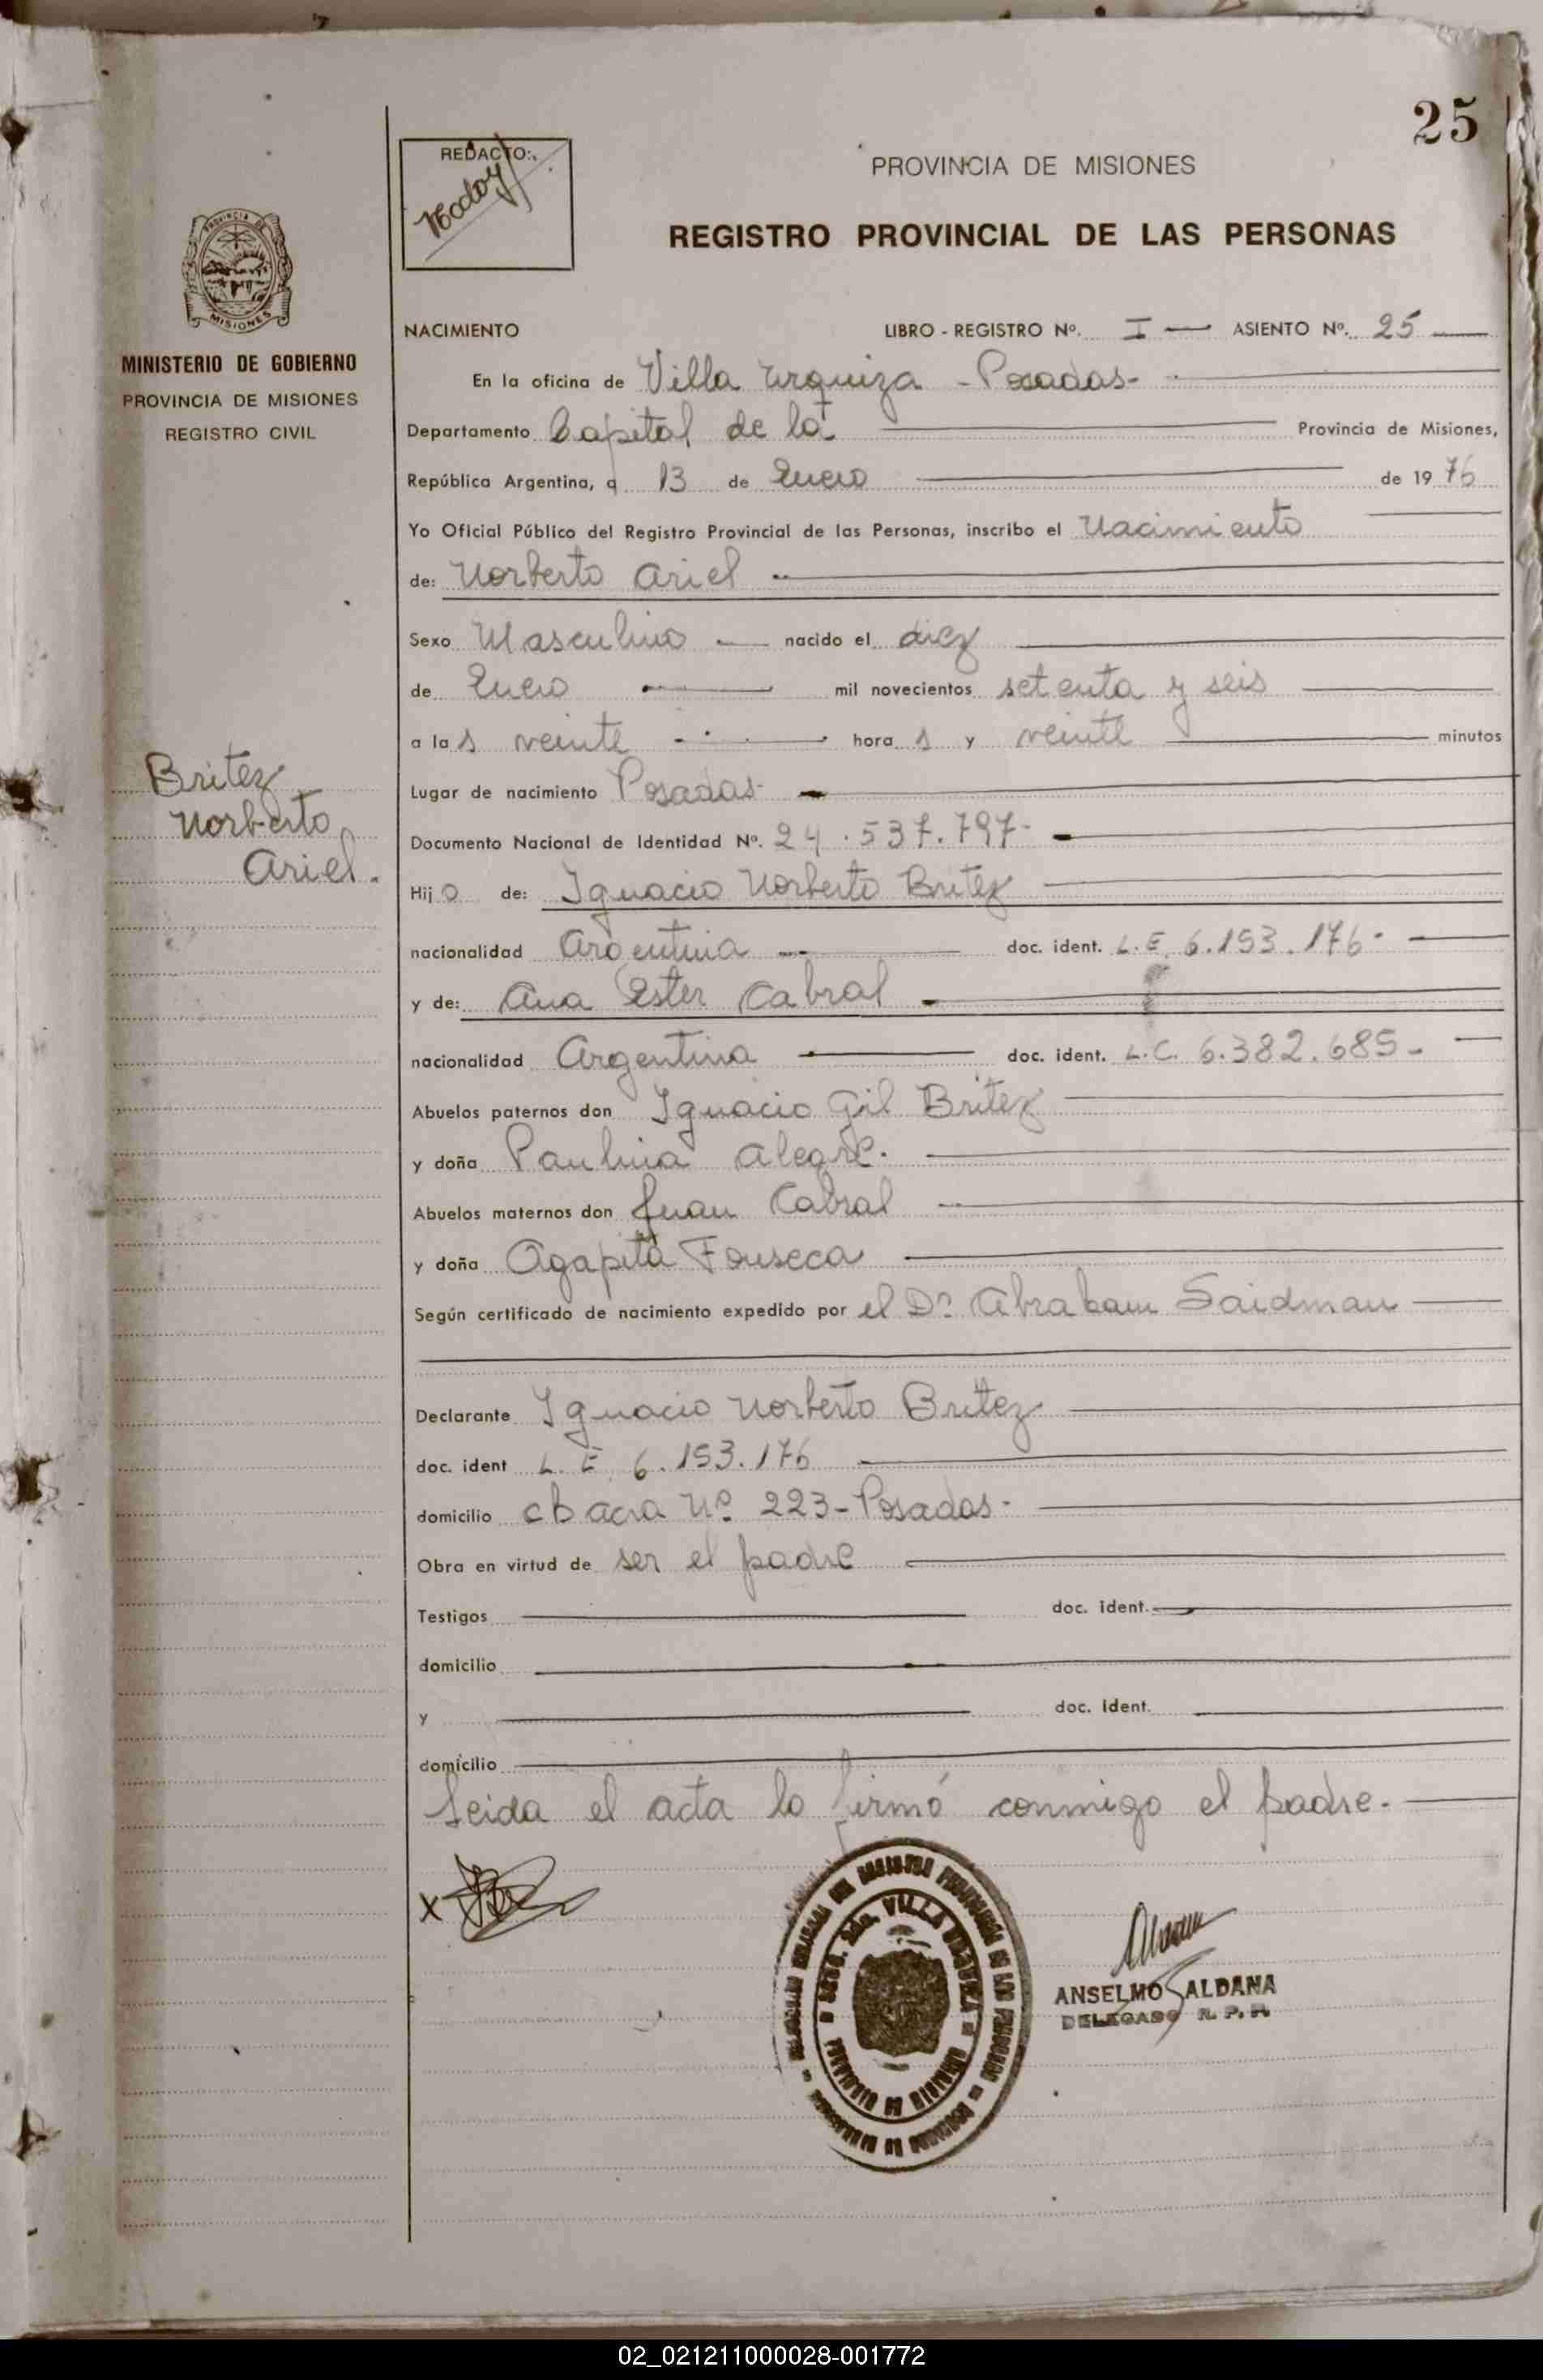 25
REDACTO:
PROVINCIA DE MISIONES
REGISTRO PROVINCIAL DE LAS PERSONAS
PROVINCIA DE
MISIONES
MINISTERIO DE GOBIERNO
PROVINCIA DE MISIONES
REGISTRO CIVIL
NACIMIENTO LIBRO - REGISTRO Nº. I — ASIENTO Nº. 25
En la oficina de Villa Urquiza - Posadas-
Departamento Capital de la Provincia de Misiones,
República Argentina, a 13 de Enero de 1976
Yo Oficial Público del Registro Provincial de las Personas, inscribo el Nacimiento
de: Norberto Ariel
Sexo Masculino nacido el diez
de Enero mil novecientos setenta y seis
a las veinte horas y veinte minutos
Britez
Norberto
Ariel.
Lugar de nacimiento Posadas
Documento Nacional de Identidad Nº. 24.537.797-
Hijo de: Ignacio Norberto Britez
nacionalidad Argentina doc. ident. L.E. 6.153.176-
y de: Ana Ester Cabral
nacionalidad Argentina doc. ident. L.C. 6.382.685-
Abuelos paternos don Ignacio Gil Britez
y doña Paulina Alegre.
Abuelos maternos don Juan Cabral
y doña Agapita Fonseca
Según certificado de nacimiento expedido por el Dr. Abraham Saidman
Declarante Ignacio Norberto Britez
doc. ident L.E. 6.153.176
domicilio chacra Nº 223-Posadas-
Obra en virtud de ser el padre
Testigos doc. ident.
domicilio
y doc. ident.
domicilio
Leida el acta lo firmó conmigo el padre.
X
VILLA URQUIZA
ANSELMO ALDANA
DELEGADO R. P. P.
02_021211000028-001772